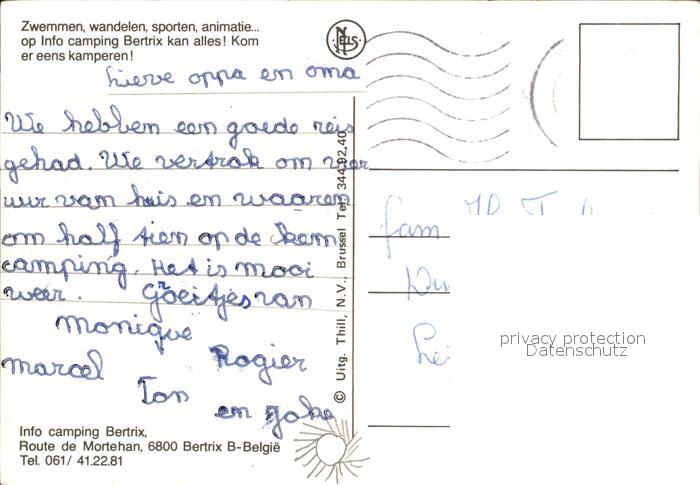 Zwemmen, wandelen, sporten, animatie...
op Info camping Bertrix kan alles! Kom
er eens kamperen!
NELS
Lieve oppa en oma
We hebben een goede reis
gehad. We vertrok om vier
uur van huis en waaren
om half tien op de kem
camping. Het is mooi
weer. Groeitjes van
Monique
Marcel Rogier
Ton
en Joke
Info camping Bertrix,
Route de Mortehan, 6800 Bertrix B-België
Tel. 061/ 41.22.81
© Uitg. Thill, N.V., Brussel Tel. 344.92.40
fam
privacy protection
Datenschutz